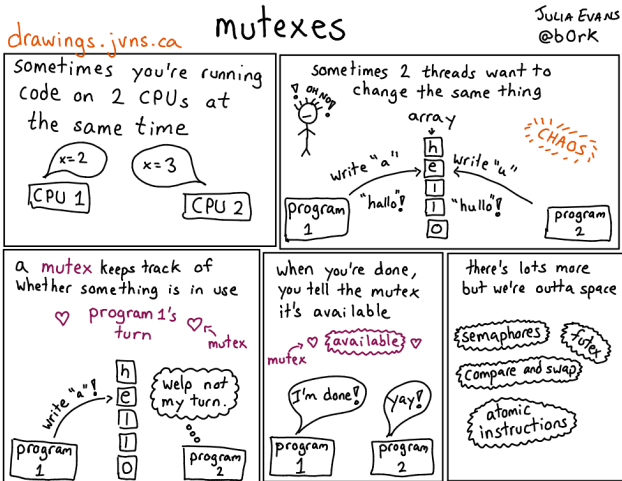 drawings.jvns.ca
mutexes
JULIA EVANS
@b0rk
sometimes you're running
code on 2 CPUs at
the same time
x=2
x=3
CPU 1
CPU 2
sometimes 2 threads want to
change the same thing
! OH NO! !
array
CHAOS
h
e
l
l
o
write "a"
write "u"
"hallo"!
"hullo"!
program
1
program
2
a mutex keeps track of
whether something is in use
program 1's
turn
mutex
h
e
l
l
o
write "a"!
welp not
my turn.
program
1
program
2
when you're done,
you tell the mutex
it's available
available
mutex
I'm done!
yay!
program
1
program
2
there's lots more
but we're outta space
semaphores
futex
compare and swap
atomic
instructions